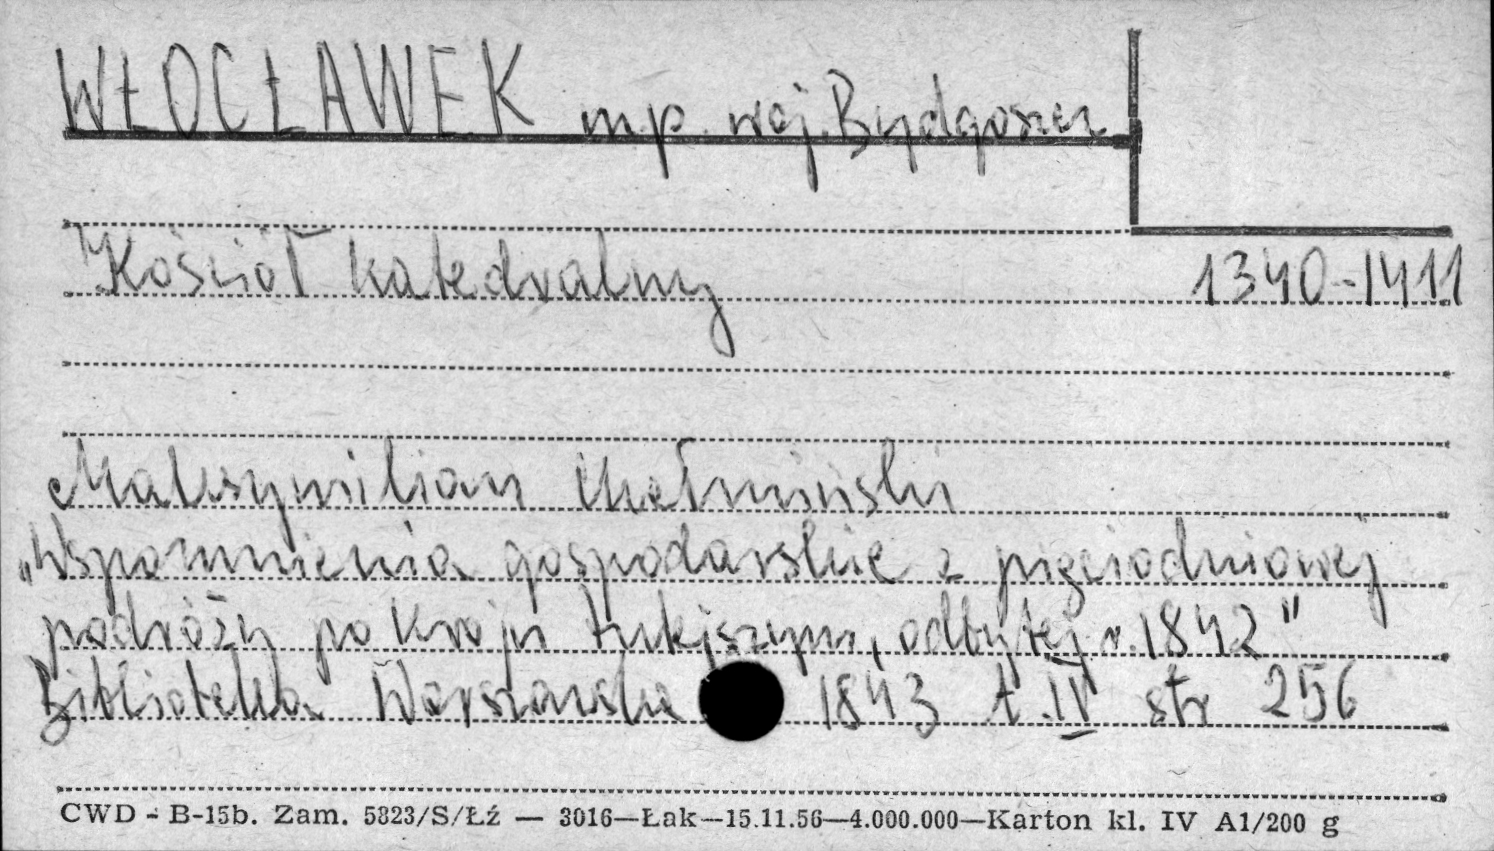 WŁOCŁAWEK m.p. woj. Bydgoszcz
Kościół katedralny 1340-1411
Maksymilian Chełmiński
„Wspomnienia gospodarskie z pięciodniowej
podróży po kraju tutejszym, odbytej r. 1842"
Biblioteka Warszawska 1843 t. IV str 256
CWD - B-15b. Zam. 5823/S/Łź — 3016—Łak—15.11.56—4.000.000—Karton kl. IV A1/200 g